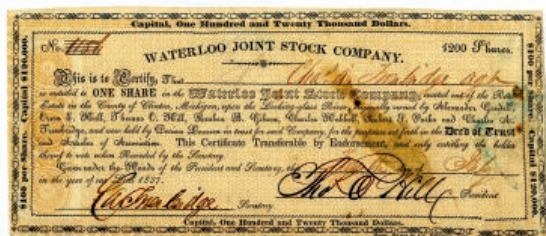 Capital, One Hundred and Twenty Thousand Dollars.
No.
WATERLOO JOINT STOCK COMPANY.
1200 Shares.
This is to Certify, That
is entitled to ONE SHARE in the Waterloo Joint Stock Company, created out of the Real
Estate in the County of Clinton, Michigan, upon the Looking-glass River, formerly owned by Alexander
Hill, Thomas O. Hill, Reuben B. Gibson, Charles Hubbell, and Charles A.
Trowbridge, and now held by in trust for said Company, for the purposes set forth in the Deed of Trust
and Articles of Association. This Certificate Transferable by Endorsement, and only entitling the holder
thereof to vote when Recorded by the Secretary.
Given under the Hands of the President and Secretary, the
in the year of our Lord 1837.
Secretary.
President
Capital, One Hundred and Twenty Thousand Dollars.
$100 per Share. Capital $120,000.
$100 per Share. Capital $120,000.